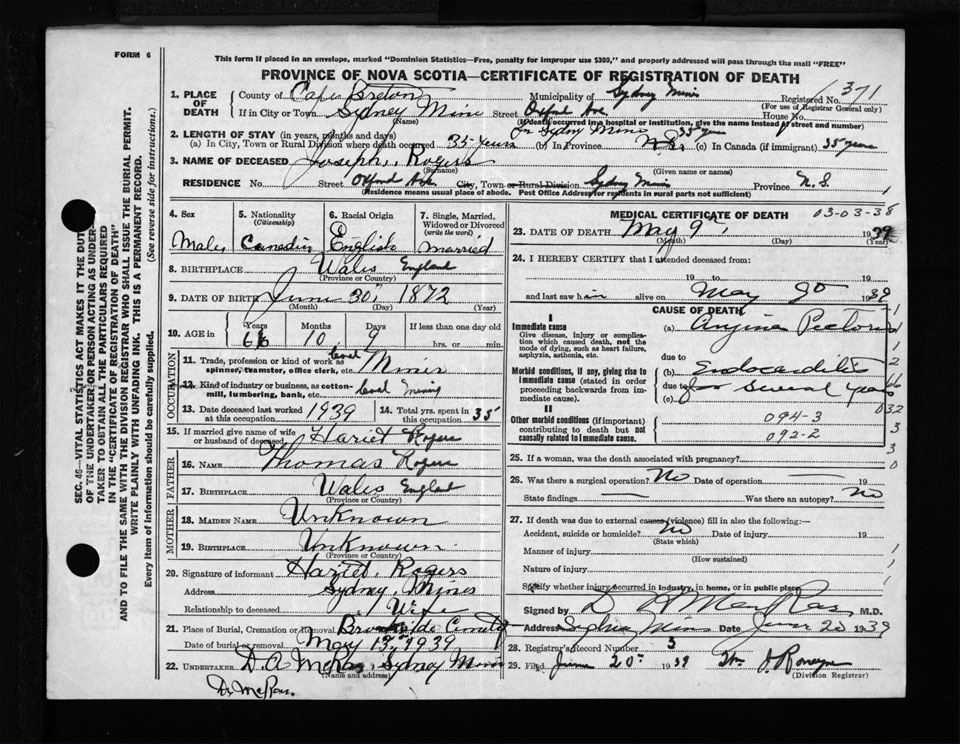 FORM 6
This form if placed in an envelope, marked "Dominion Statistics—Free, penalty for improper use $300," and properly addressed will pass through the mail "FREE"
PROVINCE OF NOVA SCOTIA—CERTIFICATE OF REGISTRATION OF DEATH
1. PLACE OF DEATH
County of Cape Breton Municipality of Sydney Mines Registered No. 371
(For use of Registrar General only)
If in City or Town Sydney Mines Street Oxford Ave House No.
(Name) (If death occurred in a hospital or institution, give the name instead of street and number)
2. LENGTH OF STAY (in years, months and days) In Sydney Mines 35 years
(a) In City, Town or Rural Division where death occurred 35 years (b) In Province N.S. (c) In Canada (if immigrant) 35 years
3. NAME OF DECEASED Joseph, Rogers
(Surname) (Given name or names)
RESIDENCE No. Street Oxford Ave. City, Town or Rural Division Sydney Mines Province N.S.
(Residence means usual place of abode. Post Office Address for residents in rural parts not sufficient)
4. Sex 5. Nationality (Citizenship) 6. Racial Origin 7. Single, Married, Widowed or Divorced (write the word)
Male Canadian English married
8. BIRTHPLACE Wales England
(Province or Country)
9. DATE OF BIRTH June 30, 1872
(Month) (Day) (Year)
10. AGE in Years Months Days If less than one day old
66 10 9 hrs. or min.
OCCUPATION
11. Trade, profession or kind of work as spinner, teamster, office clerk, etc. Miner
12. Kind of industry or business, as cotton-mill, lumbering, bank, etc. mining
13. Date deceased last worked at this occupation 1939 14. Total yrs. spent in this occupation 35
15. If married give name of wife or husband of deceased Hariet Rogers
FATHER
16. NAME Thomas Rogers
17. BIRTHPLACE Wales England
(Province or Country)
MOTHER
18. MAIDEN NAME Unknown
19. BIRTHPLACE Unknown
(Province or Country)
20. Signature of informant Harriet, Rogers
Address Sydney Mines
Relationship to deceased Wife
21. Place of Burial, Cremation or Removal
Date of burial or removal May 13, 1939
22. UNDERTAKER D.A. McRae, Sydney Mines
(Name and address)
Dr McRae.
MEDICAL CERTIFICATE OF DEATH
03-03-38
23. DATE OF DEATH May 9, 1939
(Month) (Day) (Year)
24. I HEREBY CERTIFY that I attended deceased from:
19 to 19
and last saw h im alive on May 9 1939
CAUSE OF DEATH
I
Immediate cause
Give disease, injury or complication which caused death, not the mode of dying, such as heart failure, asphyxia, asthenia, etc.
(a) Angina Pectoris
due to
Morbid conditions, if any, giving rise to immediate cause (stated in order proceeding backwards from immediate cause).
(b) Endocarditis
due to
(c) for several years
II
Other morbid conditions (if important) contributing to death but not causally related to immediate cause.
094-3
092-2
1
1
2
66
032
3
3
0
25. If a woman, was the death associated with pregnancy?
26. Was there a surgical operation? No Date of operation 19
State findings Was there an autopsy? No
27. If death was due to external causes (violence) fill in also the following:—
Accident, suicide or homicide? no Date of injury 19
(State which)
Manner of injury
(How sustained)
Nature of injury
Specify whether injury occurred in industry, in home, or in public place
Signed by M.D.
Address Sydney Mines Date June 20 1939
28. Registrar's Record Number 3
29. Filed June 20 1939
(Division Registrar)
SEC. 46—VITAL STATISTICS ACT MAKES IT THE DUTY
OF THE UNDERTAKER OR PERSON ACTING AS UNDER-
TAKER TO OBTAIN ALL THE PARTICULARS REQUIRED
IN THE "CERTIFICATE OF REGISTRATION OF DEATH"
AND TO FILE THE SAME WITH THE DIVISION REGISTRAR WHO SHALL ISSUE THE BURIAL PERMIT.
WRITE PLAINLY WITH UNFADING INK. THIS IS A PERMANENT RECORD.
Every item of information should be carefully supplied. (See reverse side for instructions.)